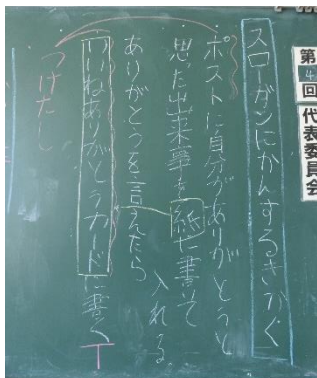 第4回代表委員会
スローガンにかんするきかく
ポストに自分がありがとうと
思った出来事を紙に書いて
入れる
ありがとうを言えたら
いいねありがとうカードに書く
つけたし